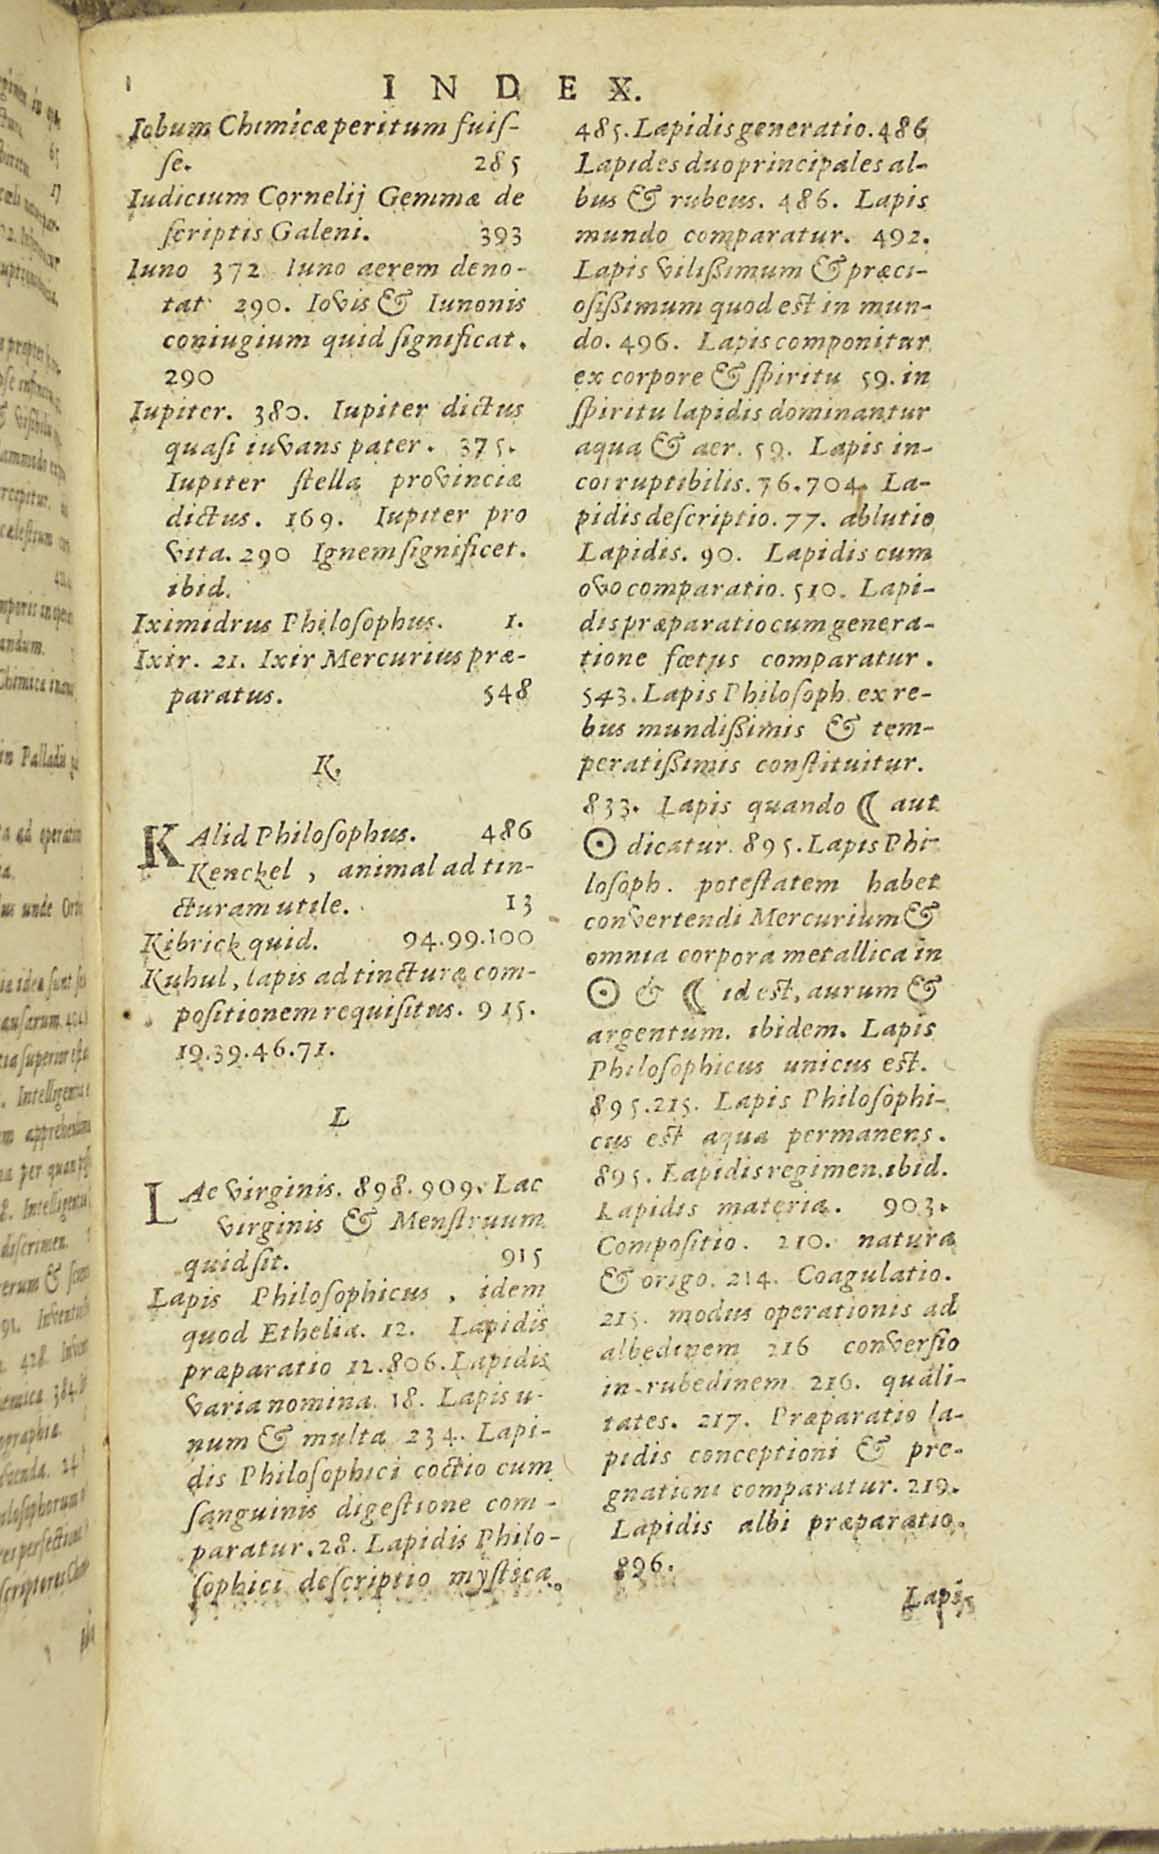 INDEX.
Iobum Chimicæ peritum fuiſ-
ſe. 285
Iudicium Cornelij Gemmæ de
ſcriptis Galeni. 393
Iuno 372 Iuno aerem deno-
tat 290. Iovis & Iunonis
coniugium quid ſignificat.
290
Iupiter. 380. Iupiter dictus
quaſi iuvans pater. 375.
Iupiter ſtella provinciæ
dictus. 169. Iupiter pro
vita. 290 Ignem ſignificet.
ibid.
Iximidrus Philoſophus. 1.
Ixir. 21. Ixir Mercurius præ-
paratus. 548
K.
KAlid Philoſophus. 486
Kenckel, animal ad tin-
cturam utile. 13
Kibrick quid. 94.99.100
Kuhul, lapis ad tincturæ com-
poſitionem requiſitus. 915.
19.39.46.71.
L
LAc virginis. 898.909. Lac
virginis & Menſtruum
quid ſit. 915
Lapis Philoſophicus, idem
quod Ethelia. 12. Lapidis
præparatio 12.806. Lapidis
varia nomina. 18. Lapis u-
num & multa 234. Lapi-
dis Philoſophici coctio cum
ſanguinis digeſtione com-
paratur. 28. Lapidis Philo-
ſophici deſcriptio myſtica.
485. Lapidis generatio. 486
Lapides duo principales al-
bus & rubeus. 486. Lapis
mundo comparatur. 492.
Lapis viliſſimum & præci-
oſiſſimum quod eſt in mun-
do. 496. Lapis componitur
ex corpore & ſpiritu 59. in
ſpiritu lapidis dominantur
aqua & aer. 59. Lapis in-
corruptibilis. 76.704. La-
pidis deſcriptio. 77. ablutio
Lapidis. 90. Lapidis cum
ovo comparatio. 510. Lapi-
dis præparatio cum genera-
tione fœtus comparatur.
543. Lapis Philoſoph. ex re-
bus mundiſſimis & tem-
peratiſſimis conſtituitur.
833. Lapis quando ☾ aut
☉ dicatur. 895. Lapis Phi-
loſoph. poteſtatem habet
convertendi Mercurium &
omnia corpora metallica in
☉ & ☾ id eſt, aurum &
argentum. ibidem. Lapis
Philoſophicus unicus eſt.
895.215. Lapis Philoſophi-
cus eſt aqua permanens.
895. Lapidis regimen. ibid.
Lapidis materia. 903.
Compoſitio. 210. natura
& origo. 214. Coagulatio.
215. modus operationis ad
albedinem 216 converſio
in rubedinem 216. quali-
tates. 217. Præparatio la-
pidis conceptioni & pre-
gnationi comparatur. 219.
Lapidis albi præparatio.
896.
Lapis